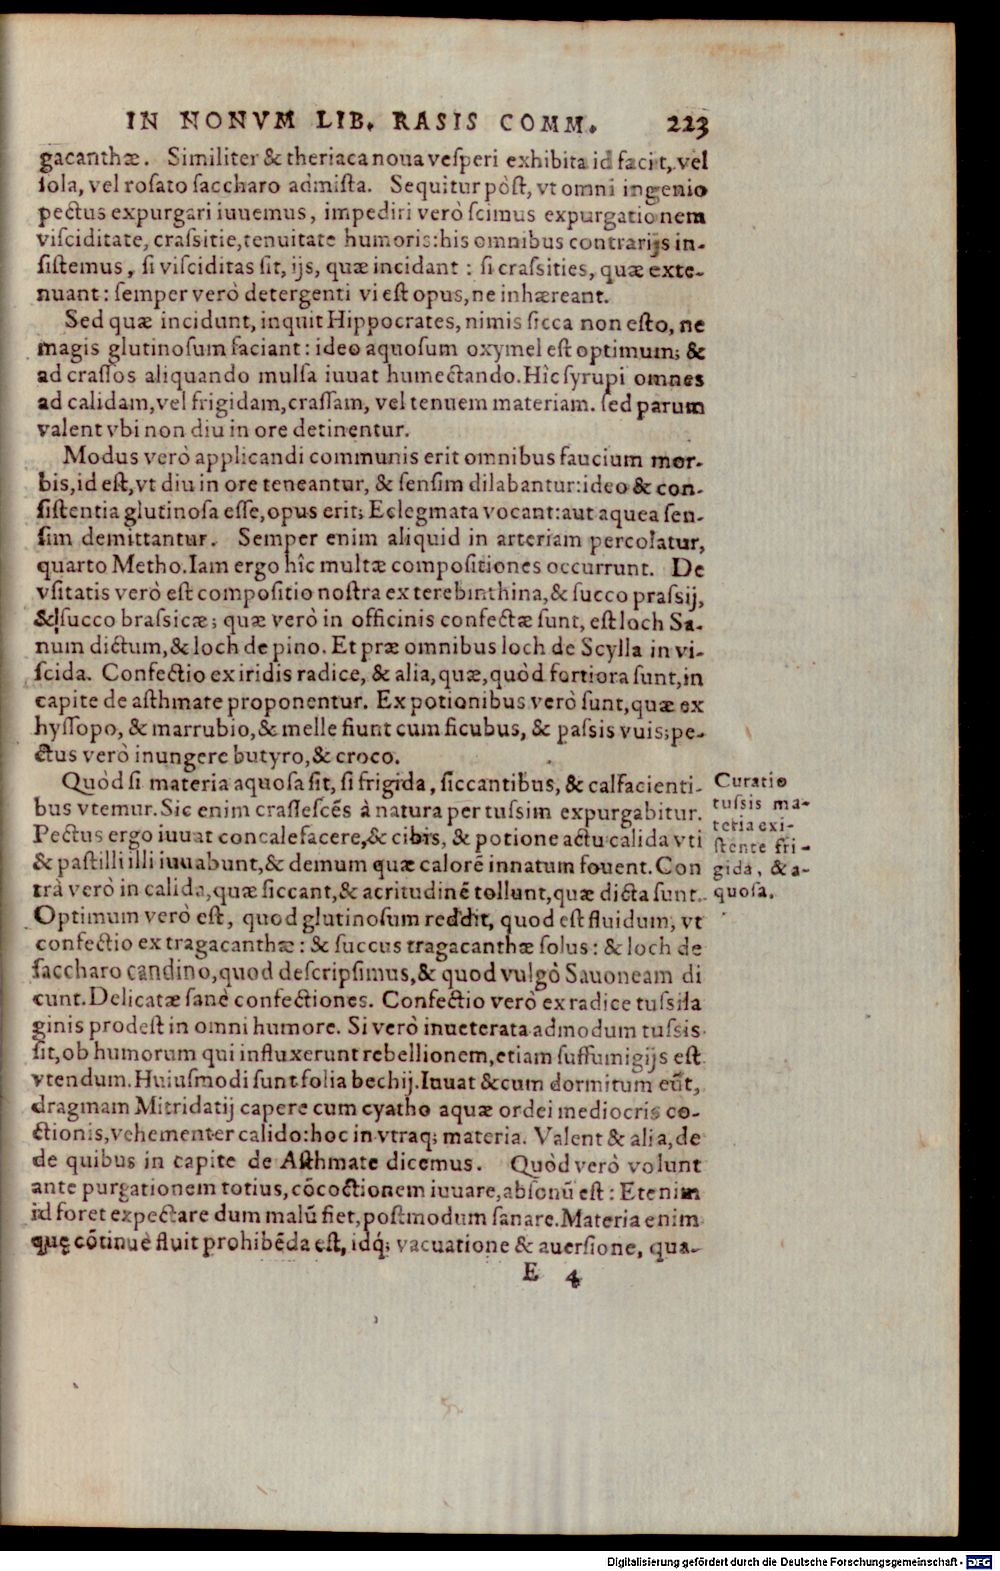 IN NONVM LIB. RASIS COMM. 223
gacanthæ. Similiter & theriaca noua vesperi exhibita id facit, vel
sola, vel rosato saccharo admista. Sequitur pòst, vt omni ingenio
pectus expurgari iuuemus, impediri verò scimus expurgationem
visciditate, crassitie, tenuitate humoris: his omnibus contrarijs in-
sistemus, si visciditas sit, ijs, quæ incidant: si crassities, quæ exte-
nuant: semper verò detergenti vi est opus, ne inhæreant.
Sed quæ incidunt, inquit Hippocrates, nimis sicca non esto, ne
magis glutinosum faciant: ideo aquosum oxymel est optimum; &
ad crassos aliquando mulsa iuuat humectando. Hîc syrupi omnes
ad calidam, vel frigidam, crassam, vel tenuem materiam. sed parum
valent vbi non diu in ore detinentur.
Modus verò applicandi communis erit omnibus faucium mor-
bis, id est, vt diu in ore teneantur, & sensim dilabantur: ideo & con-
sistentia glutinosa esse, opus erit; Eclegmata vocant: aut aquea sen-
sim demittantur. Semper enim aliquid in arteriam percolatur,
quarto Metho. Iam ergo hîc multæ compositiones occurrunt. De
vsitatis verò est compositio nostra ex terebinthina, & succo prassij,
& succo brassicæ; quæ verò in officinis confectæ sunt, est loch Sa-
num dictum, & loch de pino. Et præ omnibus loch de Scylla in vi-
scida. Confectio ex iridis radice, & alia, quæ, quòd fortiora sunt, in
capite de asthmate proponentur. Ex potionibus verò sunt, quæ ex
hyssopo, & marrubio, & melle fiunt cum ficubus, & passis vuis; pe-
ctus verò inungere butyro, & croco.
Quòd si materia aquosa sit, si frigida, siccantibus, & calfacienti-
bus vtemur. Sic enim crassescẽs à natura per tussim expurgabitur.
Pectus ergo iuuat concalefacere, & cibis, & potione actu calida vti
& pastilli illi iuuabunt, & demum quæ calorẽ innatum fouent. Con
trà verò in calida, quæ siccant, & acritudinẽ tollunt, quæ dicta sunt.
Optimum verò est, quod glutinosum reddit, quod est fluidum, vt
confectio ex tragacanthæ: & succus tragacanthæ solus: & loch de
saccharo candino, quod descripsimus, & quod vulgò Sauoneam di
cunt. Delicatæ sanè confectiones. Confectio verò ex radice tussila
ginis prodest in omni humore. Si verò inueterata admodum tussis
sit, ob humorum qui influxerunt rebellionem, etiam suffumigijs est
vtendum. Huiusmodi sunt folia bechij. Iuuat & cum dormitum eũt,
dragmam Mitridatij capere cum cyatho aquæ ordei mediocris co-
ctionis, vehementer calido: hoc in vtraq; materia. Valent & alia, de
de quibus in capite de Asthmate dicemus. Quòd verò volunt
ante purgationem totius, cõcoctionem iuuare, absonũ est: Etenim
id foret expectare dum malũ fiet, postmodum sanare. Materia enim
quę cõtinuè fluit prohibẽda est, idq́; vacuatione & auersione, qua-
E 4
Curatio
tussis ma-
teria exi-
stente fri-
gida, & a-
quosa.
Digitalisierung gefördert durch die Deutsche Forschungsgemeinschaft - DFG